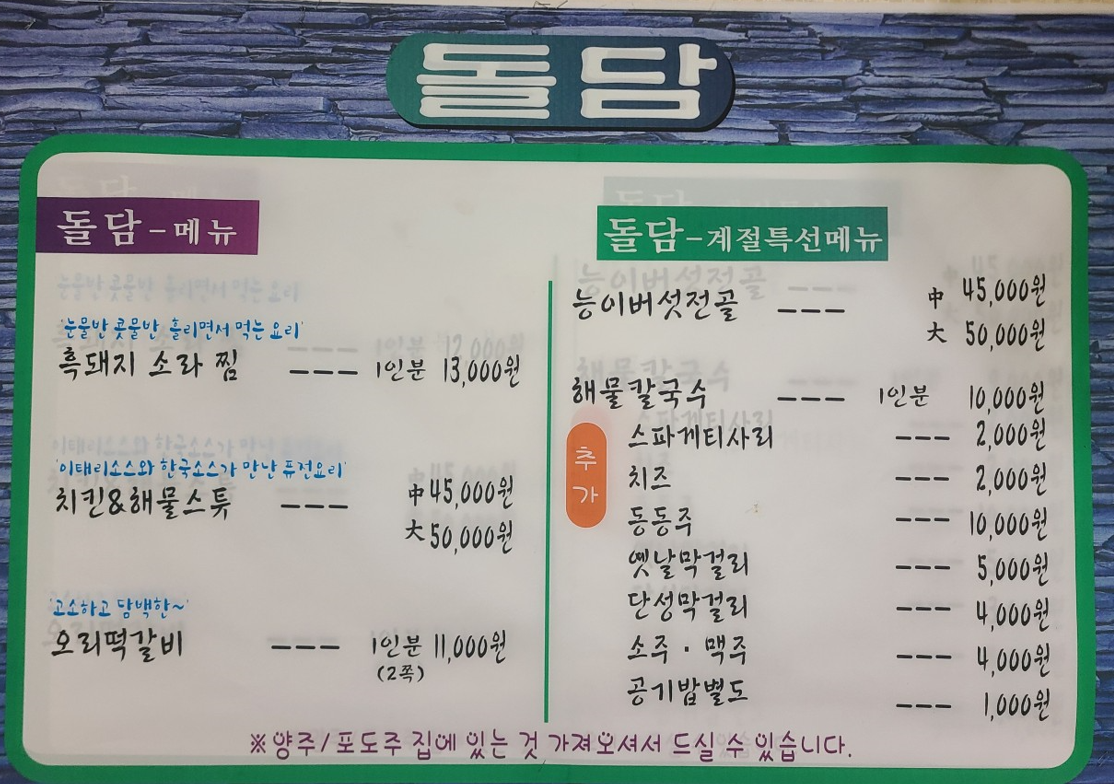 돌담
돌담-메뉴
'눈물반 콧물반 흘리면서 먹는 요리'
흑돼지 소라 찜 --- 1인분 13,000원
'이태리소스와 한국소스가 만난 퓨전요리'
치킨&해물스튜 --- 中 45,000원
大 50,000원
'고소하고 담백한~'
오리떡갈비 --- 1인분 11,000원
(2쪽)
돌담-계절특선메뉴
능이버섯전골 --- 中 45,000원
大 50,000원
해물칼국수 --- 1인분 10,000원
추가
스파게티사리 --- 2,000원
치즈 --- 2,000원
동동주 --- 10,000원
옛날막걸리 --- 5,000원
단성막걸리 --- 4,000원
소주·맥주 --- 4,000원
공기밥별도 --- 1,000원
※양주/포도주 집에 있는 것 가져오셔서 드실 수 있습니다.